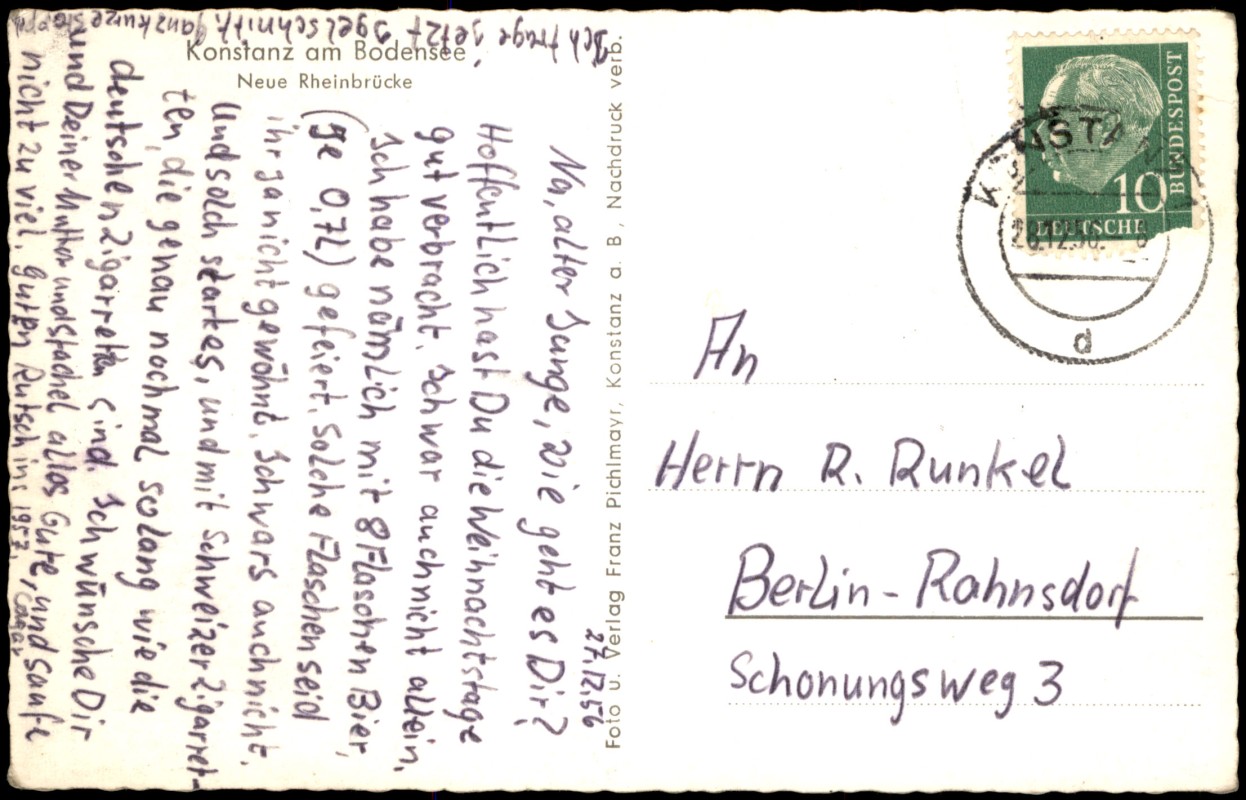 Konstanz am Bodensee
Neue Rheinbrücke
27.12.56
Na, alter Junge, wie geht es Dir?
Hoffentlich hast Du die Weihnachtstage
gut verbracht. Ich war auch nicht allein,
Ich habe nämlich mit 8 Flaschen Bier,
(Je 0,7L) gefeiert. Solche Flaschen seid
ihr ga nicht gewöhnt. Ich wars auch nicht.
Und solch starkes, und mit Schweizer Zigarret-
ten, die genau nochmal solang wie die
deutschen Zigarreten sind. Ich wünsche Dir
und Deiner Mutter und Stachel alles Gute, und saufe
nicht zu viel. Guten Rutsch ins 1957.
Ich trage jetzt Igelschnitt. Ganz kurze
Foto u. Verlag Franz Pichlmayr, Konstanz a. B., Nachdruck verb.
BUNDESPOST
10
DEUTSCHE
28.12.56
d
An
Herrn R. Runkel
Berlin-Rahnsdorf
Schonungsweg 3